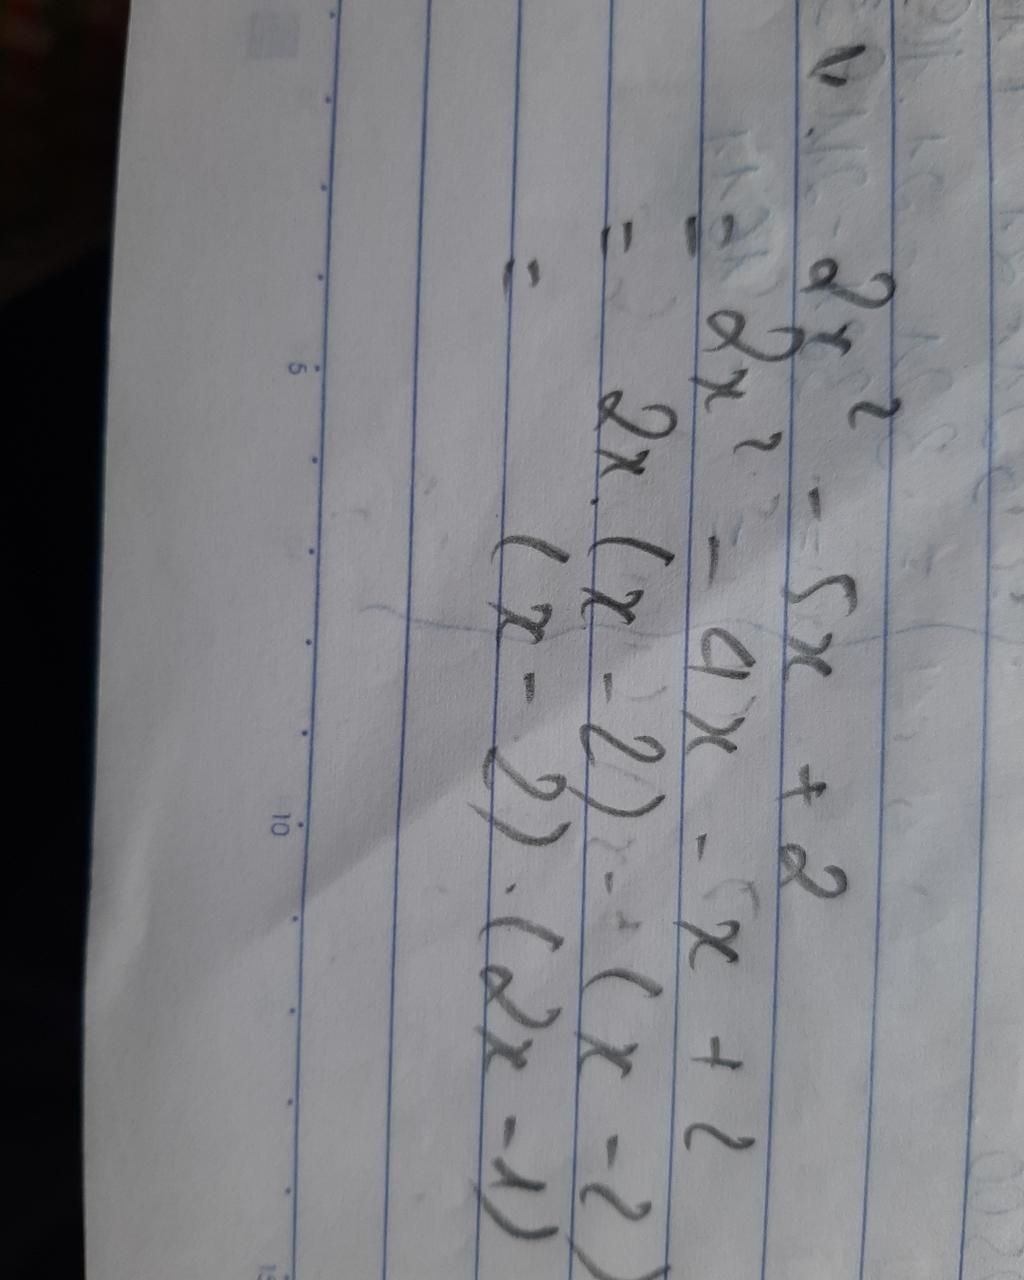 2x² - 5x + 2
= 2x² - 4x - x + 2
= 2x.(x - 2) - (x - 2)
= (x - 2).(2x - 1)
5
10